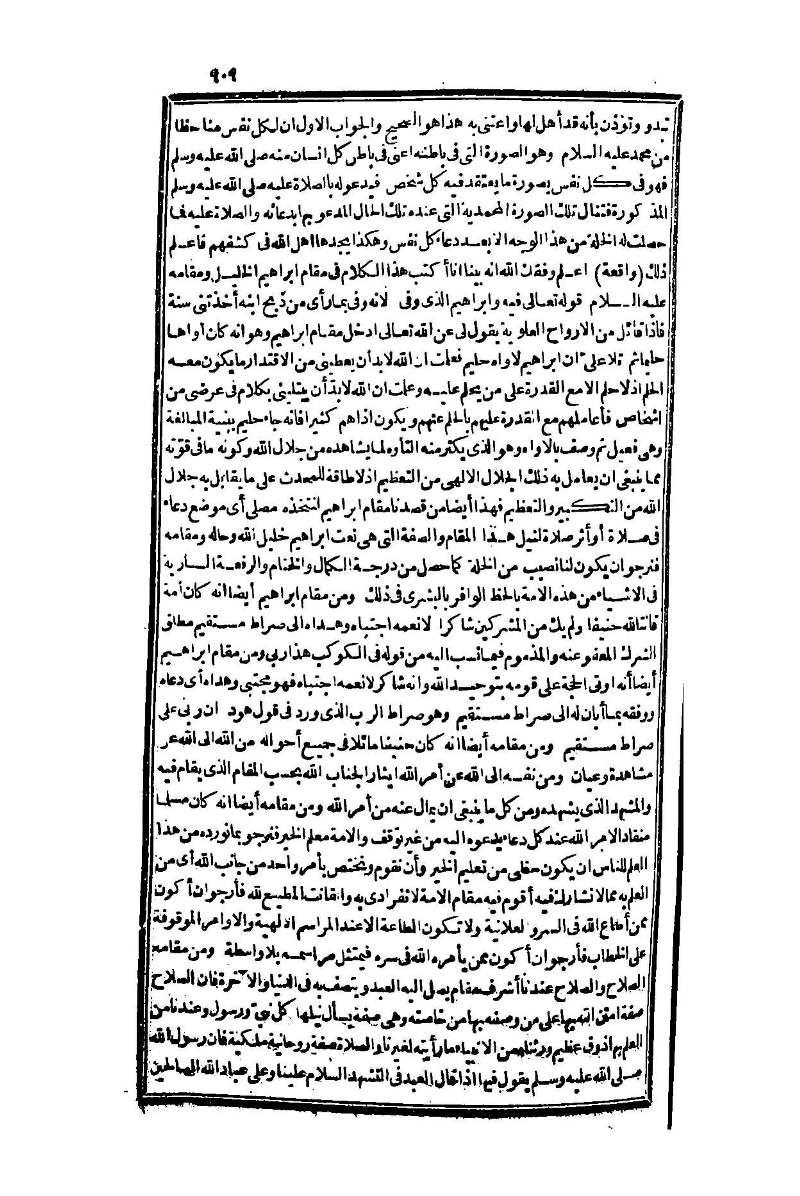 ٩٠٩
تبدو وتؤذن بأنه قد أهل لها واعتنى به هذا هو الصحيح والجواب الاول ان لكل نفس منا حظا
من محمد عليه السلام وهو الصورة التى فى باطنه اعنى فى باطن كل انسان منه صلى الله عليه وسلم
فهو فى كل نفس بصورة ما يعتقد فيه كل شخص فيدعوله بالصلاة عليه صلى الله عليه وسلم
المذكورة فتنال تلك الصورة المحمدية التى عنده تلك الحال المدعو بها بدعائه والصلاة عليه فما
حصلت له الخلة من هذا الوجه الا بعد دعاء كل نفس وهكذا يجدها اهل الله فى كشفهم فاعلم
ذلك (واقعة) اعلم وفقك الله انه بينا انا أكتب هذا الكلام فى مقام ابراهيم الخليل ومقامه
عليه السلام قوله تعالى فيه وابراهيم الذى وفى لانه وفى بما رأى من ذبح ابنه أخذتنى سنة
فاذا قائل من الارواح العلوية يقول لى عن الله تعالى ادخل مقام ابراهيم وهو انه كان أواها
حليما ثم تلا على ان ابراهيم لاواه حليم فعلمت ان الله لابد أن يعطينى من الاقتدار ما يكون معه
الحلم اذ لا حلم الا مع القدرة على من يحلم عليه وعلمت ان الله لابد أن يبتلينى بكلام فى عرضى من
اشخاص فأعاملهم مع القدرة عليهم بالحلم عنهم ويكون اذاهم كثيرا فانه جاء حليم ببنية المبالغة
وهى فعيل ثم وصف بالاواه وهو الذى يكثر منه التأوه لما يشاهده من جلال الله وكونه ما فى قوته
مما ينبغى ان يعامل به ذلك الجلال الالهى من التعظيم اذ لا طاقة للمحدث على ما يقابل به جلال
الله من التكبير والتعظيم فهذا أيضا من قصدنا مقام ابراهيم لنتخذه مصلى أى موضع دعاء
فى صلاة أو أثر صلاة لنيل هذا المقام والصفة التى هى نعت ابراهيم خليل الله وحاله ومقامه
فنرجو ان يكون لنا نصيب من الخلة كما حصل من درجة الكمال والختام والرفعة السارية
فى الاشياء من هذه الامة بالحظ الوافر بالبشرى فى ذلك ومن مقام ابراهيم أيضا انه كان أمة
قانتا لله حنيفا ولم يك من المشركين شاكرا لانعمه اجتباه وهداه الى صراط مستقيم مطلق
الشرك المعفو عنه والمذموم فيما نسب اليه من قوله فى الكوكب هذا ربى ومن مقام ابراهيم
أيضا أنه اوتى الحجة على قومه بتوحيد الله وانه شاكر لانعمه اجتباه فهو مجتبى وهداه أى دعاه
ووفقه بما أبان له الى صراط مستقيم وهو صراط الرب الذى ورد فى قول هود ان ربى على
صراط مستقيم ومن مقامه أيضا انه كان حنيفا مائلا فى جميع أحواله من الله الى الله عن
مشاهدة وعيان ومن نفسه الى الله عن أمر الله ايثار الجناب الله بحسب المقام الذى يقام فيه
والمشهد الذى يشهده ومن كل ما ينبغى ان يمال عنه من أمر الله ومن مقامه أيضا انه كان مسلما
منقادا لامر الله عند كل دعاء يدعوه اليه من غير توقف والامة معلم الخير فنرجو بما نورده من هذا
العلم للناس ان يكون حظى من تعليم الخير وأن نقوم ونختص بأمر واحد من جانب الله أى من
العلم به مما لا نشارك فيه أقوم فيه مقام الامة لانفرادى به والقانت المطيع لله فأرجو ان أكون
ممن أطاع الله فى السر والعلانية ولا تكون الطاعة الا عند المراسم الالهية والاوامر الموقوفة
على الخطاب فأرجو ان أكون ممن يأمره الله فى سره فيمتثل مراسمه بلا واسطة ومن مقامه
الصلاح والصلاح عندنا أشرف مقام يصل اليه العبد ويتصف به فى الدنيا والآخرة فان الصلاح
صفة امتن الله بها على من وصفه بها من خاصته وهى صفة يسأل نيلها كل نبى ورسول وعندنا من
العلم بها ذوق عظيم ورثناه من الانبياء ما رأيته لغيرنا والصلاة صفة روحانية ملكية فان رسول الله
صلى الله عليه وسلم يقول فيها اذا قال العبد فى التشهد السلام علينا وعلى عباد الله الصالحين